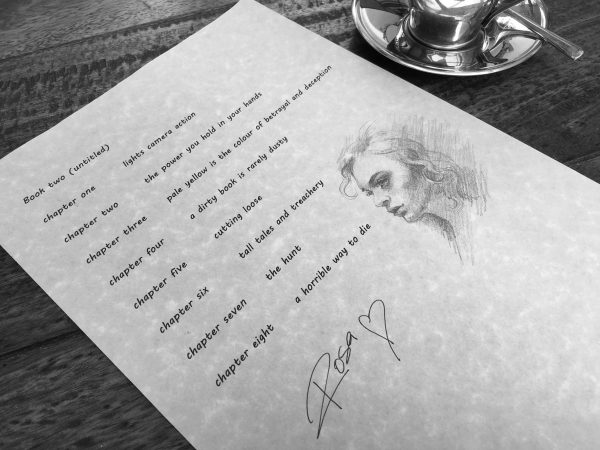 Book two (untitled)
chapter one lights camera action
chapter two the power you hold in your hands
chapter three pale yellow is the colour of betrayal and deception
chapter four a dirty book is rarely dusty
chapter five cutting loose
chapter six tall tales and treachery
chapter seven the hunt
chapter eight a horrible way to die
Rosa